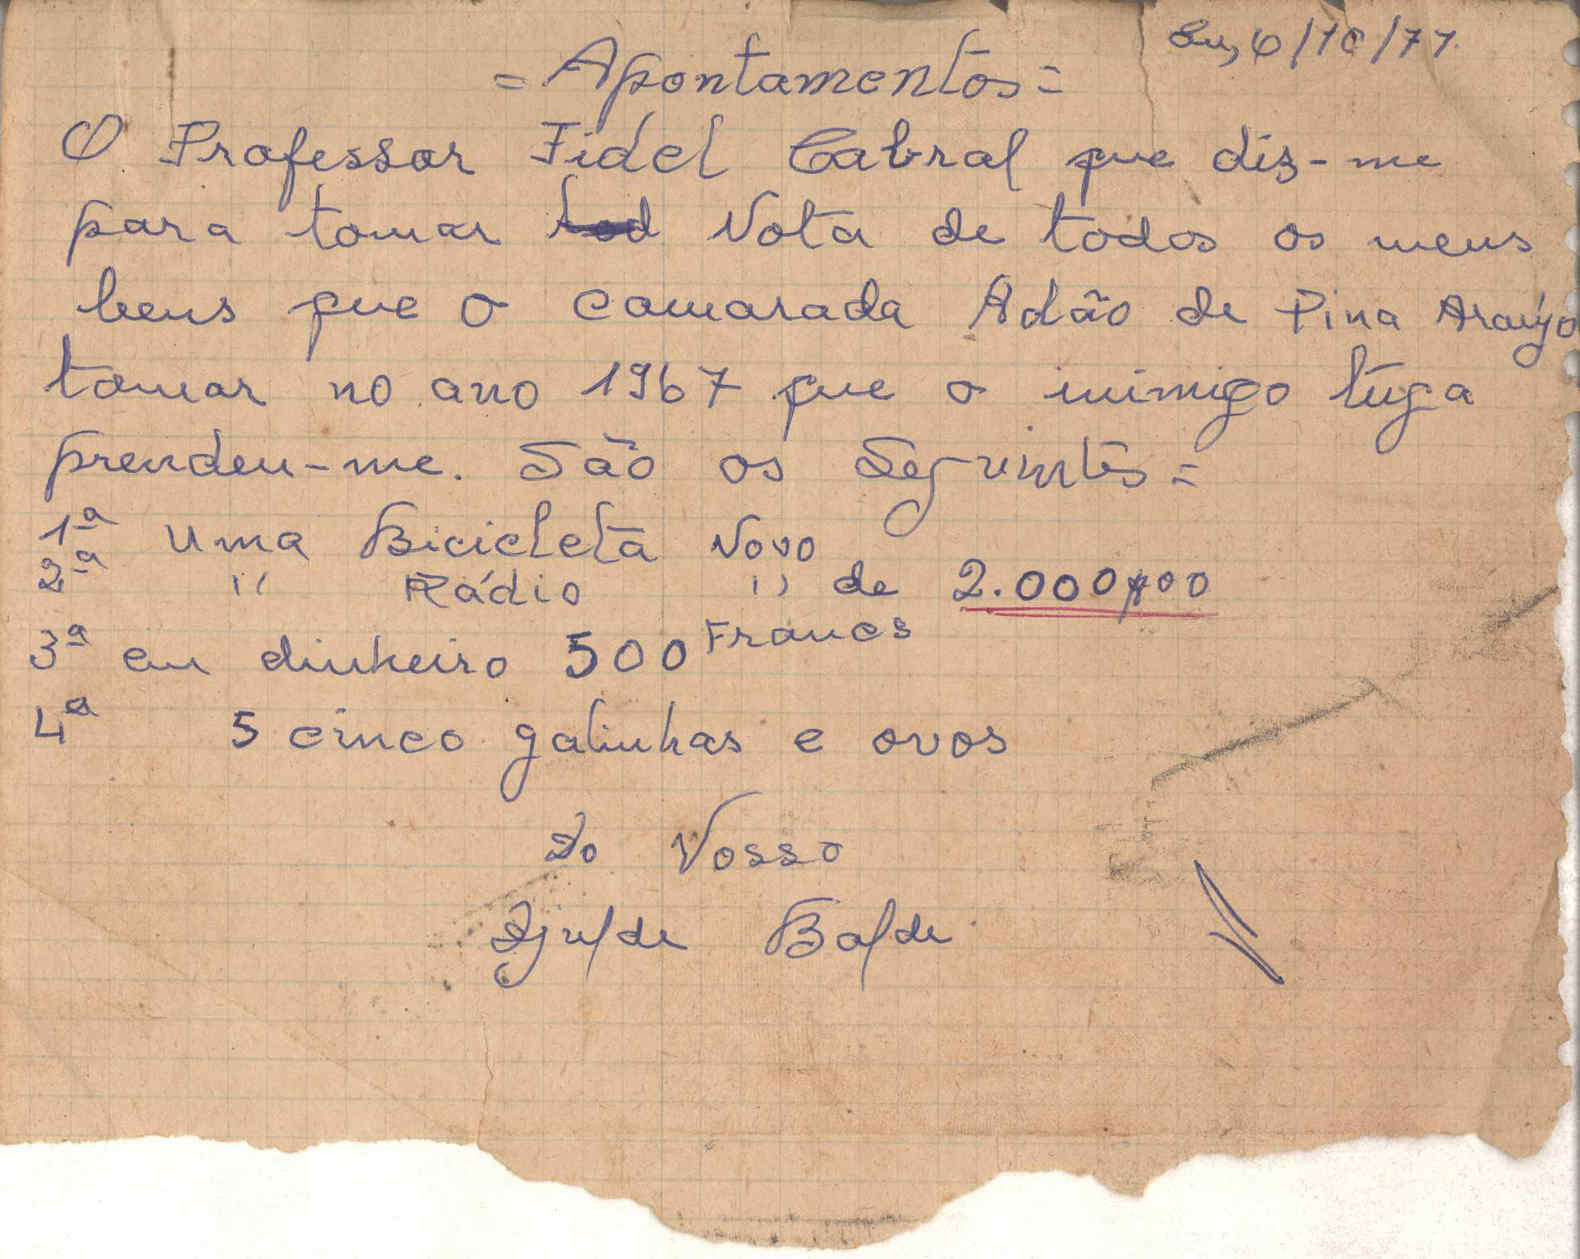 Em, 6/10/77.
= Apontamentos =
O Professor Fidel Cabral que dis-me
para tomar Nota de todos os meus
bens que o camarada Adão de Pina Araújo
tomar no ano 1967 que o inimigo tuga
prendeu-me. São os Seguintes =
1ª Uma Bicicleta Novo
2ª " Rádio " de 2.000$00
3ª em dinheiro 500 Francs
4ª 5 cinco galinhas e ovos
Do Vosso
Djulde Balde